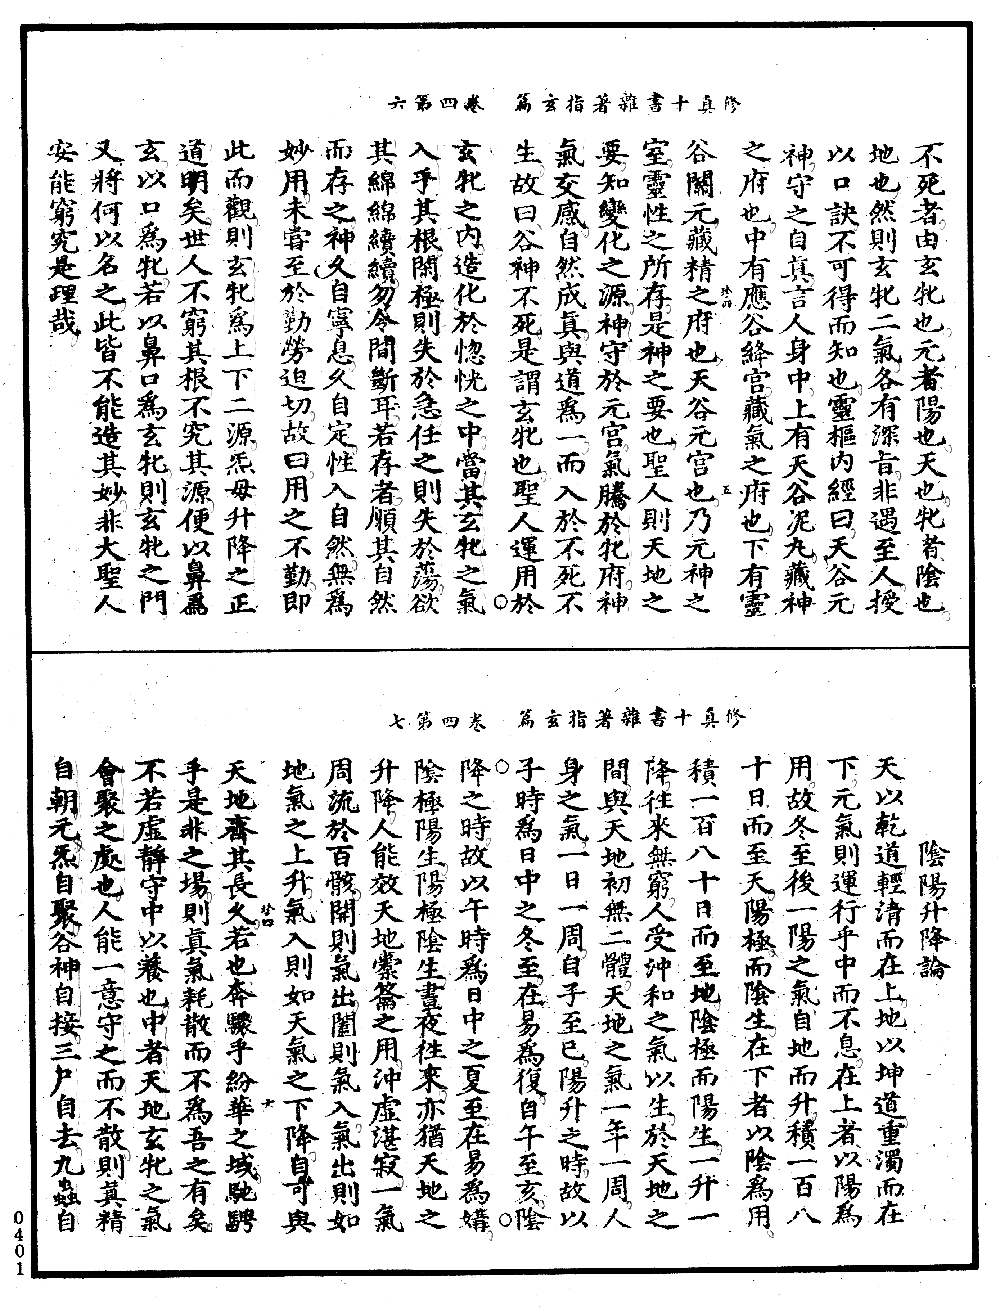 修真十書雜著指玄篇　卷四第六
不死者由玄牝也元者陽也天也牝者陰也
地也然則玄牝二氣各有深旨非遇至人授
以口訣不可得而知也靈樞內經曰天谷元
神守之自真言人身中上有天谷泥丸藏神
之府也中有應谷絳宮藏氣之府也下有靈
谷關元藏精之府也天谷元宮也乃元神之
珍四　五
室靈性之所存是神之要也聖人則天地之
要知變化之源神守於元宮氣騰於牝府神
氣交感自然成真與道為一而入於不死不
生故曰谷神不死是謂玄牝也聖人運用於
玄牝之內造化於惚恍之中當其玄牝之氣
入乎其根閉極則失於急任之則失於蕩欲
其綿綿續續勿令間斷耳若存者順其自然
而存之神久自寧息久自定性入自然無為
妙用未嘗至於勤勞迫切故曰用之不勤即
此而觀則玄牝為上下二源炁母升降之正
道明矣世人不窮其根不究其源便以鼻為
玄以口為牝若以鼻口為玄牝則玄牝之門
又將何以名之此皆不能造其妙非大聖人
安能窮究是理哉
修真十書雜著指玄篇　卷四第七
陰陽升降論
天以乾道輕清而在上地以坤道重濁而在
下元氣則運行乎中而不息在上者以陽為
用故冬至後一陽之氣自地而升積一百八
十日而至天陽極而陰生在下者以陰為用
積一百八十日而至地陰極而陽生一升一
降往來無窮人受沖和之氣以生於天地之
間與天地初無二體天地之氣一年一周人
身之氣一日一周自子至巳陽升之時故以
子時為日中之冬至在易為復自午至亥陰
降之時故以午時為日中之夏至在易為媾
陰極陽生陽極陰生晝夜往來亦猶天地之
升降人能效天地橐籥之用沖虛湛寂一氣
周流於百骸開則氣出闔則氣入氣出則如
地氣之上升氣入則如天氣之下降自可與
天地齊其長久若也奔驟乎紛華之域馳騁
珍四　六
乎是非之場則真氣耗散而不為吾之有矣
不若虛靜守中以養也中者天地玄牝之氣
會聚之處也人能一意守之而不散則真精
自朝元炁自聚谷神自接三尸自去九蟲自
0401